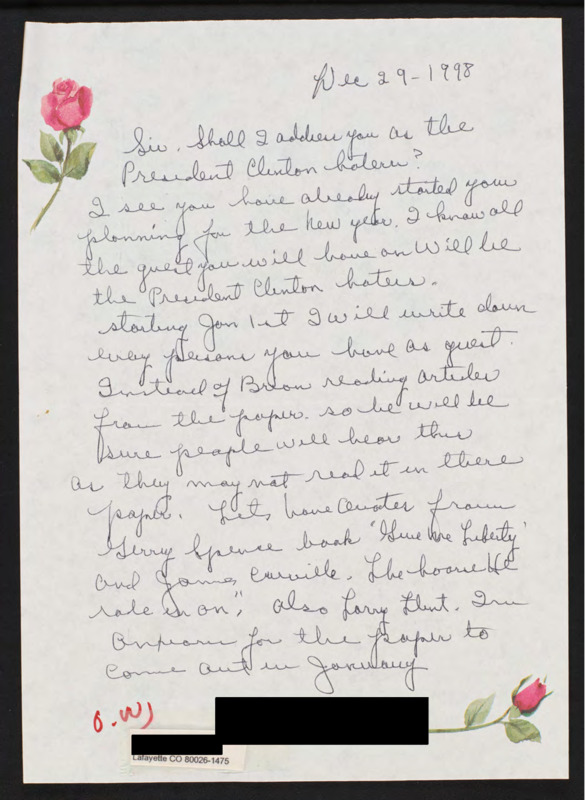 Dec 29-1998
Sir. Shall I address you as the
President Clinton haters?
I see you have already started your
planning for the new year. I know all
the guest you will have on will be
the President Clinton haters.
starting Jan 1st I will write down
every persons you have as guest.
Instead of Brian reading articles
from the paper. so he will be
sure people will hear this
as they may not read it in there
paper. Lets have Quotes from
Gerry Spence book "Give me Liberty"
and James Carville. The horse He
rode in on", also Larry Flint. Im
for the paper to
come out in January
O.W)
Lafayette CO 80026-1475